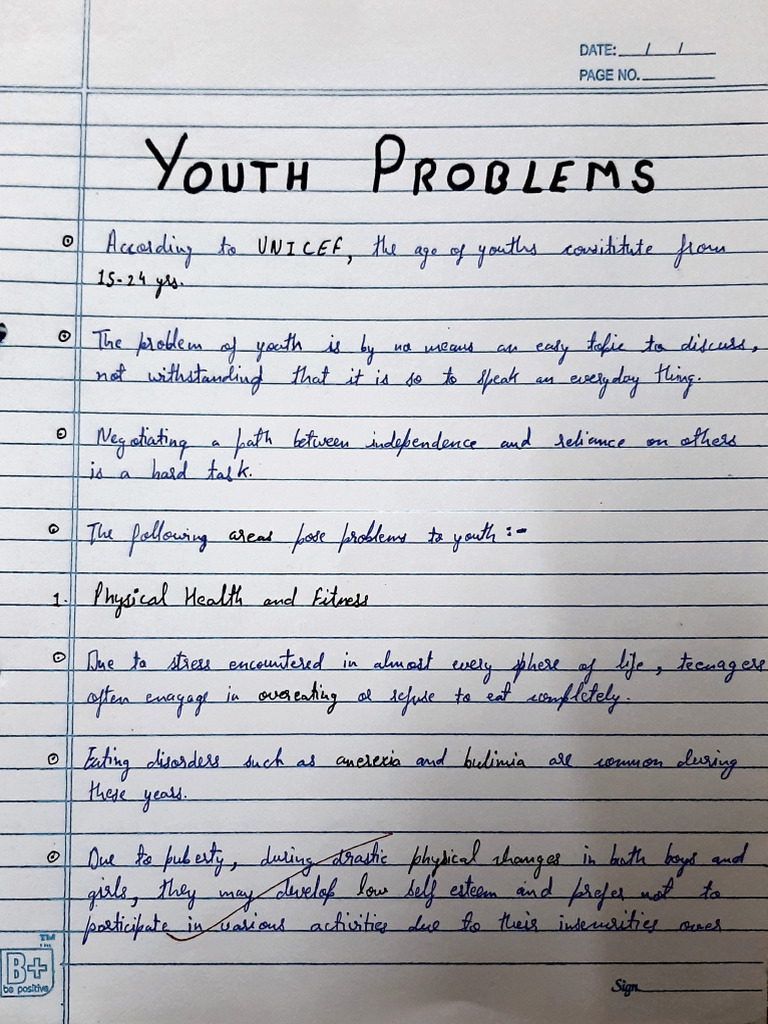 DATE: __/__/__
PAGE NO. ______
YOUTH PROBLEMS
According to UNICEF, the age of youths consititute from
15-24 yrs.
The problem of youth is by no means an easy topic to discuss,
not withstanding that it is so to speak an everyday thing.
Negotiating a path between independence and reliance on others
is a hard task.
The following areas pose problems to youth :-
1. Physical Health and Fitness
Due to stress encountered in almost every sphere of life, teenagers
often enagage in overeating or refuse to eat completely.
Eating disorders such as anerexia and bulimia are common during
these years.
Due to puberty, during drastic physical changes in both boys and
girls, they may develop low self esteem and prefer not to
participate in various activities due to their insecurities over
TM
B+
be positive
Sign______